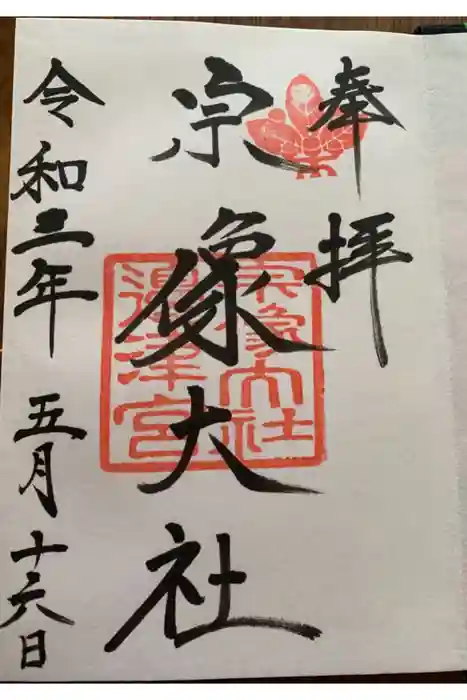 奉拝
宗像大社
宗像大社
邉津宮
令和三年 五月十六日